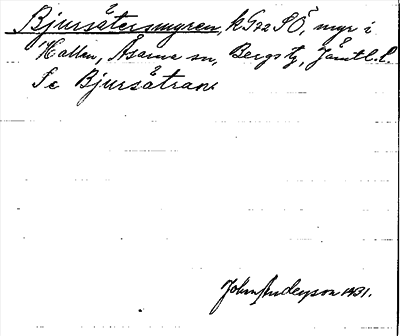 Bjursåtersmyren, kG22 SÖ, myr i
Hallen, Åsarna sn, Bergs tg, Jämtl. l.
Se Bjursåtran.
John Anderson 1931.